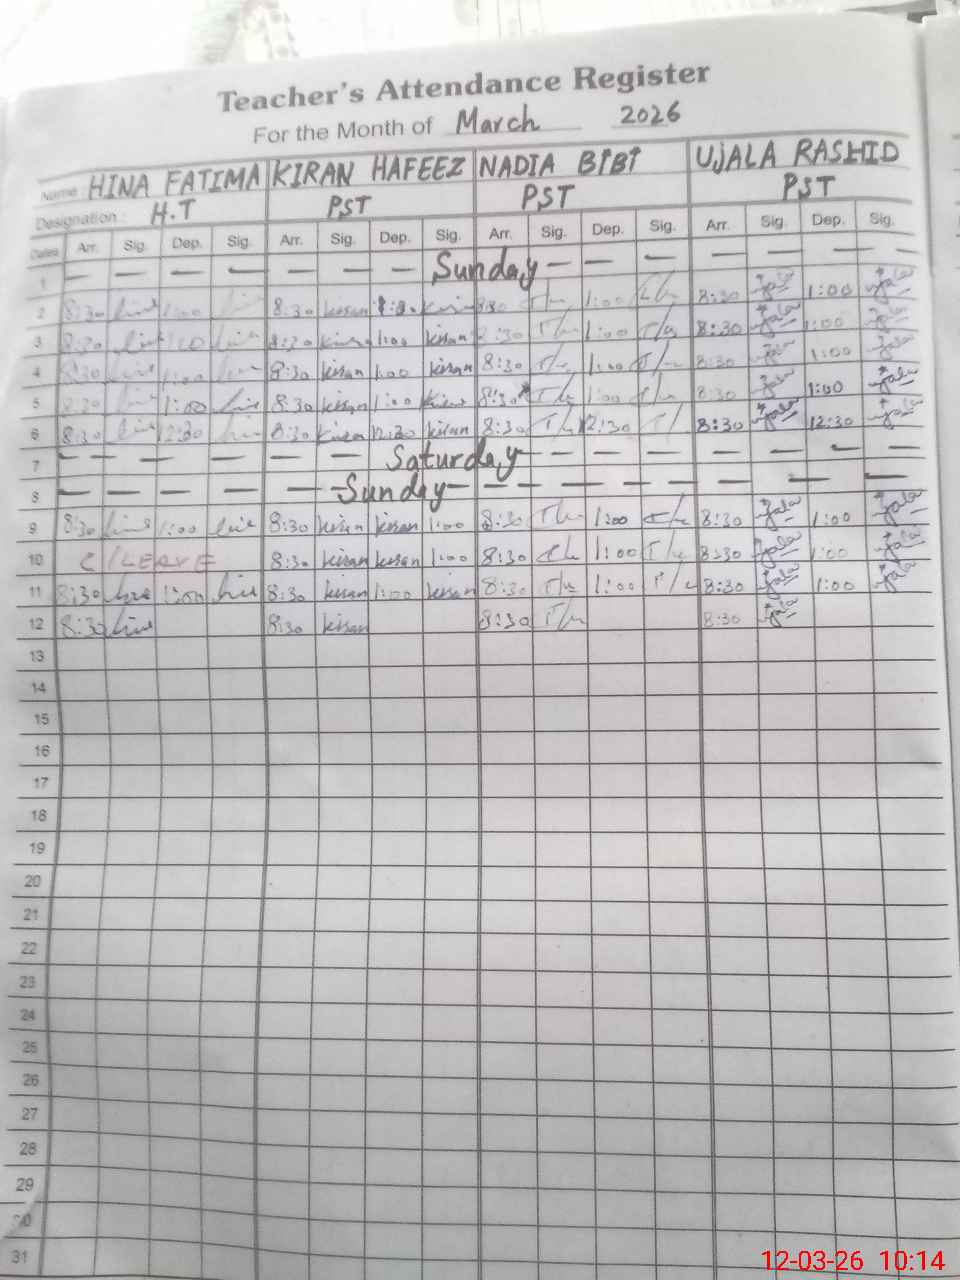 Teacher's Attendance Register
For the Month of March 2026
Name: HINA FATIMA KIRAN HAFEEZ NADIA BIBI UJALA RASHID
Designation: H.T PST PST PST
Dates Arr. Sig. Dep. Sig. Arr. Sig. Dep. Sig. Arr. Sig. Dep. Sig. Arr. Sig. Dep. Sig.
1 — — — — — — — Sunday — — — — — — —
2 8:30 1:00 8:30 kiran 8:30 1:00 8:30 Ujala 1:00 Ujala
3 8:30 1:00 8:30 1:00 kiran 8:30 1:00 8:30 Ujala 1:00 Ujala
4 8:30 1:00 8:30 kiran 1:00 kiran 8:30 1:00 8:30 Ujala 1:00 Ujala
5 8:30 1:00 8:30 kiran 1:00 kiran 8:30 1:00 8:30 Ujala 1:00 Ujala
6 8:30 12:30 8:30 kiran 12:30 kiran 8:30 12:30 8:30 Ujala 12:30 Ujala
7 — — — — — — Saturday — — — — — — —
8 — — — — — Sunday — — — — — — — —
9 8:30 1:00 8:30 kiran kiran 1:00 8:30 1:00 8:30 Ujala 1:00 Ujala
10 C/LEAVE 8:30 kiran kiran 1:00 8:30 1:00 8:30 Ujala 1:00 Ujala
11 8:30 1:00 8:30 kiran 1:00 kiran 8:30 1:00 8:30 Ujala 1:00 Ujala
12 8:30 8:30 kiran 8:30 8:30 Ujala
13
14
15
16
17
18
19
20
21
22
23
24
25
26
27
28
29
30
31
12-03-26 10:14